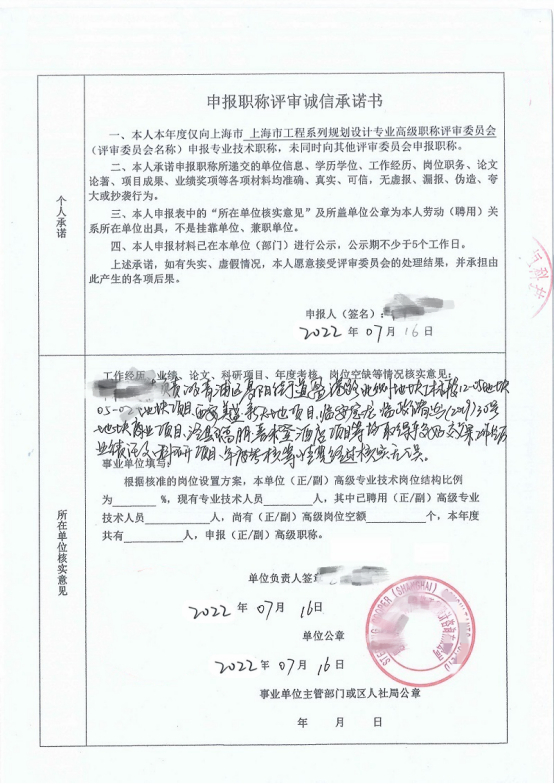 申报职称评审诚信承诺书
一、本人本年度仅向上海市 上海市工程系列规划设计专业高级职称评审委员会
（评审委员会名称）申报专业技术职称，未同时向其他评审委员会申报职称。
二、本人承诺申报职称所递交的单位信息、学历学位、工作经历、岗位职务、论文
论著、项目成果、业绩奖项等各项材料均准确、真实、可信，无虚报、漏报、伪造、夸
大或抄袭行为。
三、本人申报表中的“所在单位核实意见”及所盖单位公章为本人劳动（聘用）关
系所在单位出具，不是挂靠单位、兼职单位。
四、本人申报材料已在本单位（部门）进行公示，公示期不少于5个工作日。
上述承诺，如有失实、虚假情况，本人愿意接受评审委员会的处理结果，并承担由
此产生的各项后果。
个人承诺
申报人（签名）：
2022 年 07 月 16 日
工作经历、业绩、论文、科研项目、年度考核、岗位空缺等情况核实意见：
青浦区 街道
地块项目 项目
地块商业项目 酒店项目等均取得
业绩 论文 科研项目、年度考核等情况经过核实无误。
事业单位填写：
根据核准的岗位设置方案，本单位（正/副）高级专业技术岗位结构比例
为 %，现有专业技术人员 人，其中已聘用（正/副）高级专业
技术人员 人，尚有（正/副）高级岗位空额 个，本年度
共有 人，申报（正/副）高级职称。
所在单位核实意见
单位负责人签
2022 年 07 月 16日
单位公章
2022 年 07 月 16 日
事业单位主管部门或区人社局公章
年 月 日
(SHANGHAI)